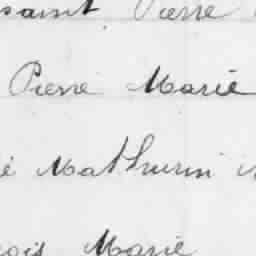 saint Pierre
Pierre Marie
é Mathurin
ois Marie